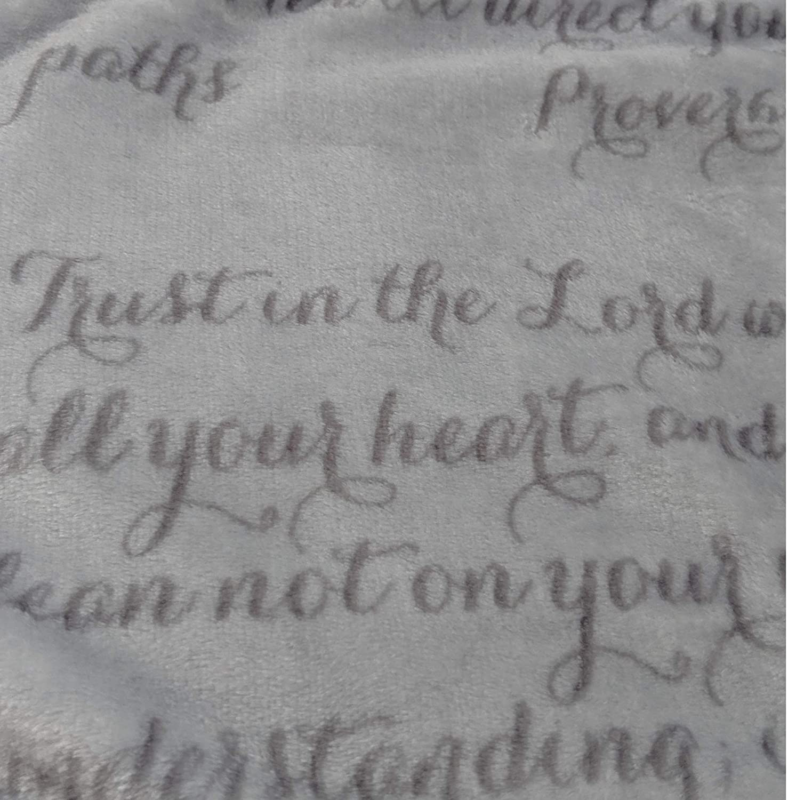 direct you
paths Proverb
Trust in the Lord w
all your heart, and
lean not on your
understanding,